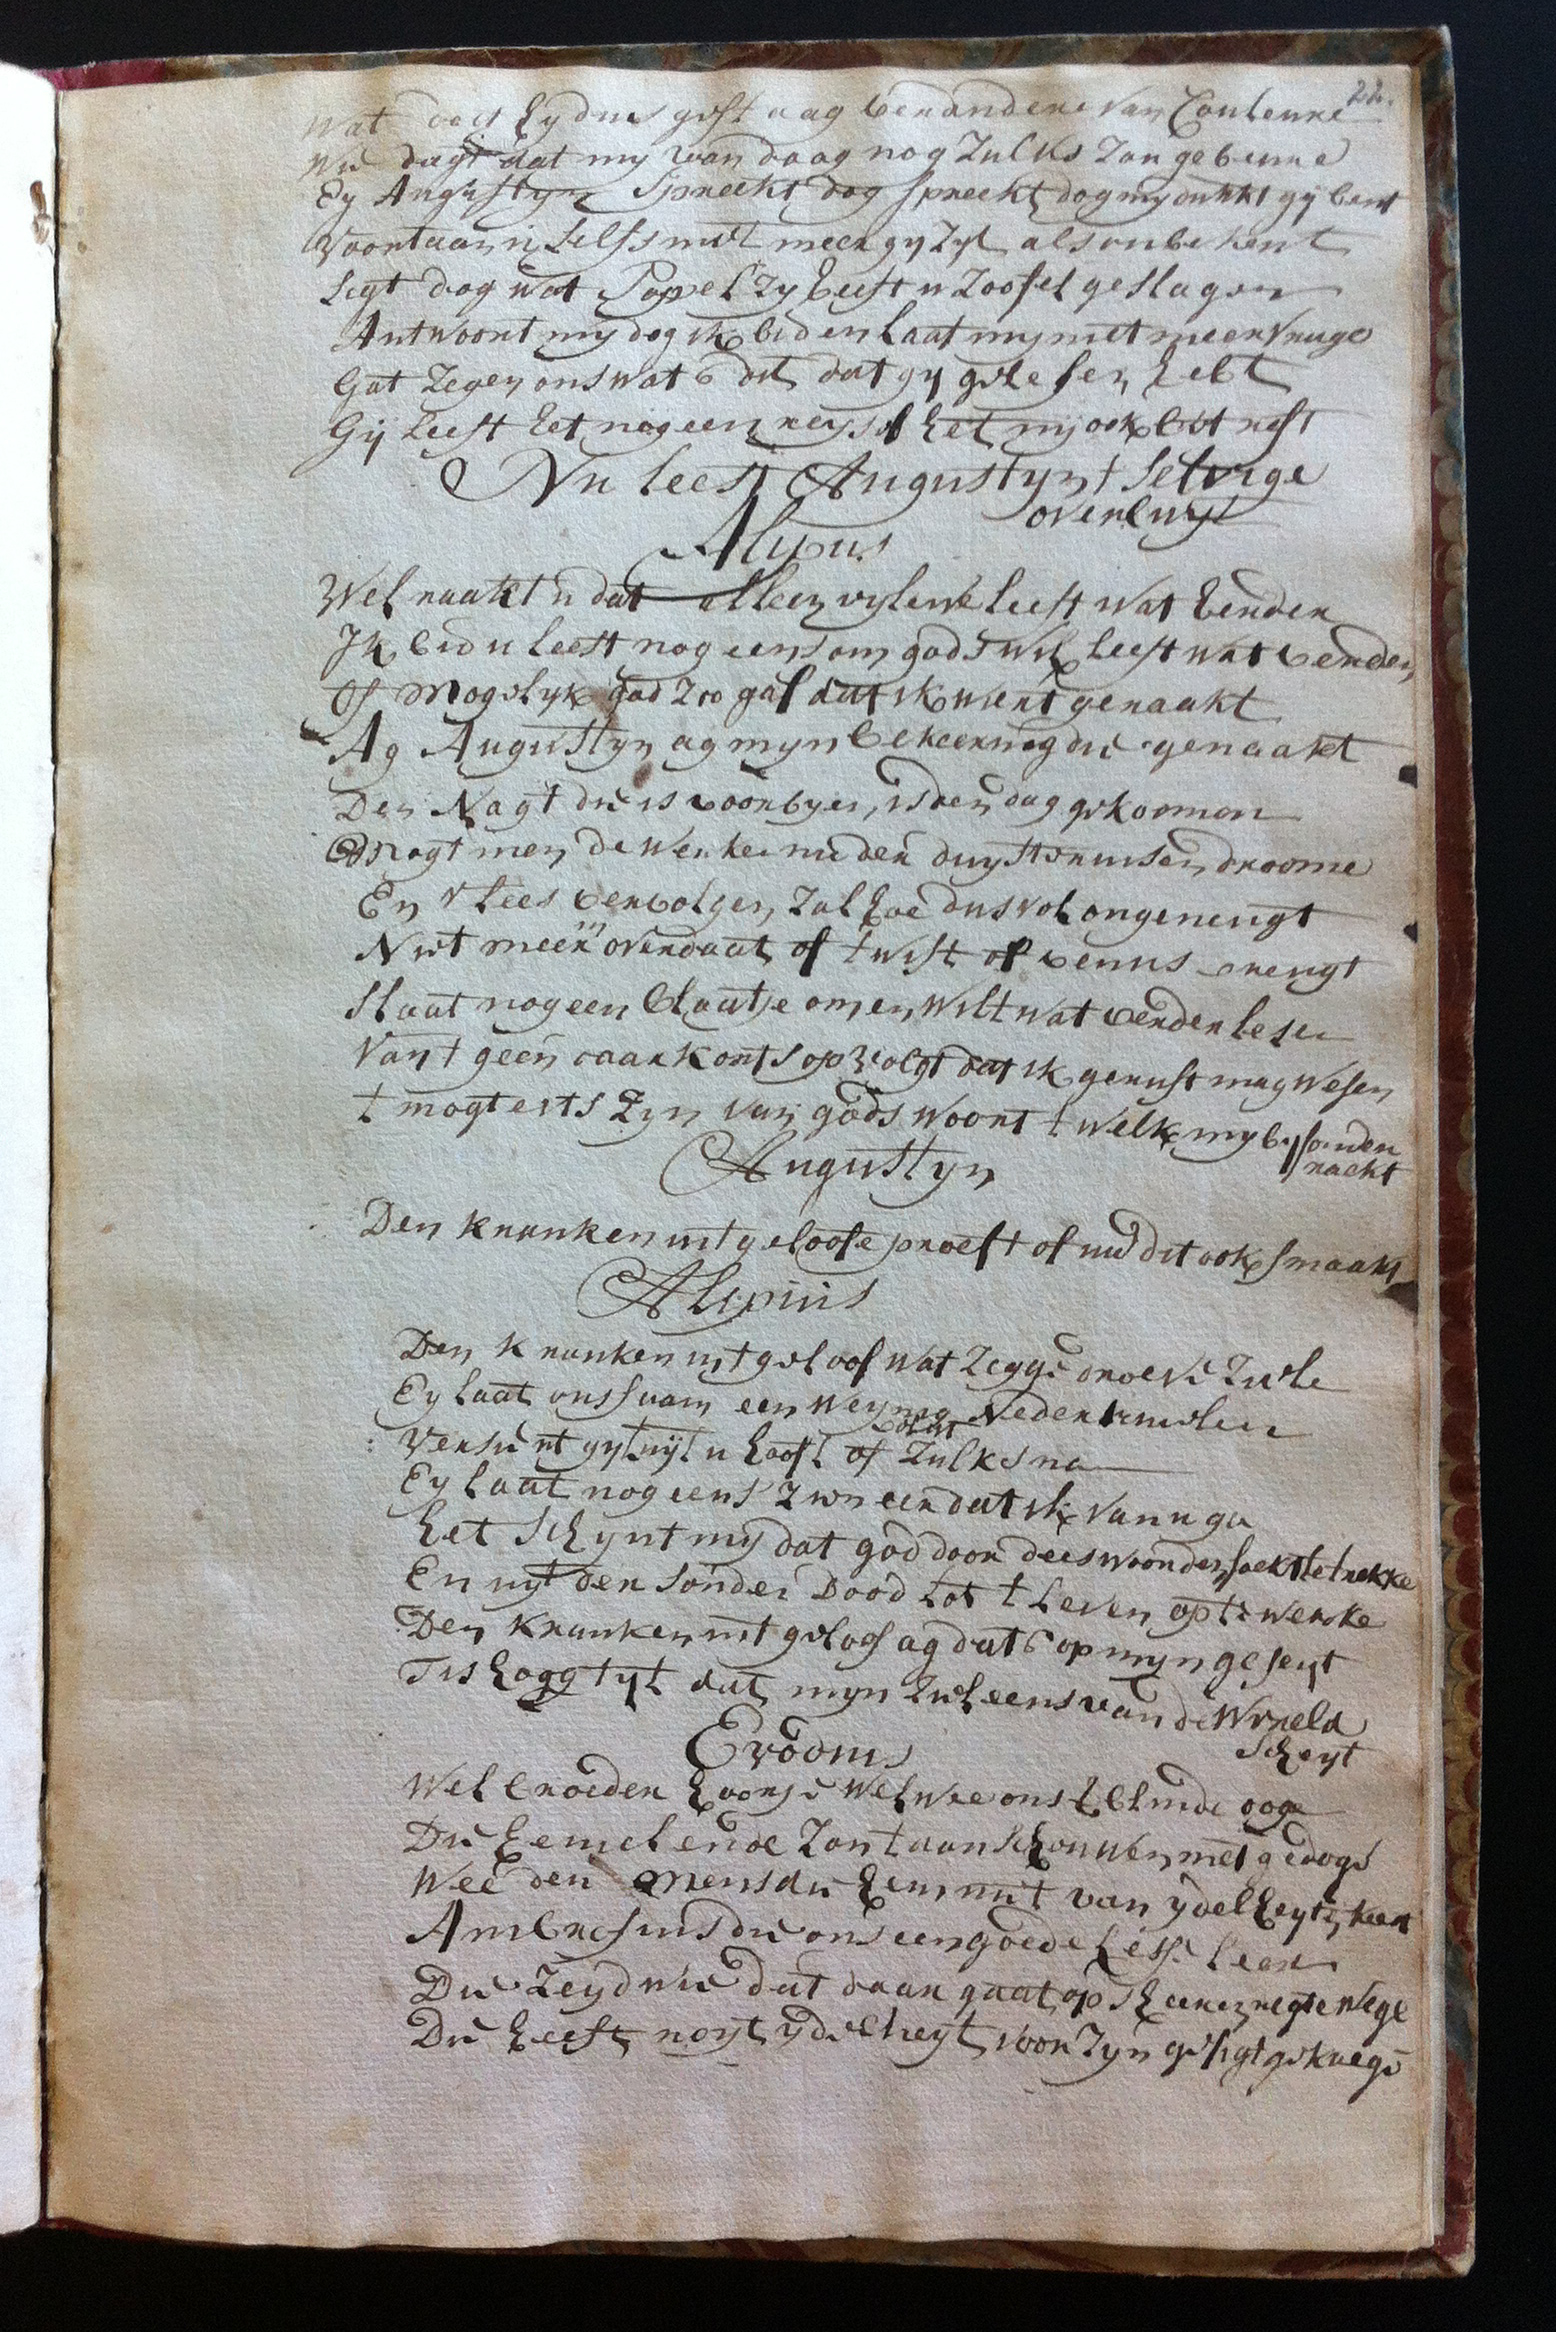 22.
Wat hy dus gift aag veranderd van Couleure
Nu dagt dat my van daag nog Zulks Zou gebeure
Ey Augustyn Spreekt dog spreekt dog my dunkt gy bent
Voortaan u selfs niet meer gy Zyt als onbekent
Segt dog wat Pyl Zy heeft u Zoo fel geslagen
Antwoort my dog ik bid en laat my niet meer vrage
Gat Zegen ons wat 6 dit dat gy gelesen hebt
Gij leest het nog een reys of het mij ook bot reft
Nu leest Augustyn t selvige
overluyt
Alipius
Wel raakt u dat alleen vyleut leest wat verder
Ik bid u leest nog eens om gods wil leest wat verder
Of mogelyk god Zoo gaf dat ik wert geraakt
Ag Augustyn ag myn bekeering die genaakt
Den Nagt die is voorbyen, is den dag gekoomen
mogt men de werken nu der duysternissen droome
En vlees vervolgen Zal hoe dus vol ongeneugt
Niet meer overdaat of twist of venus vreugt
Slaat nog een blaatje om en wilt wat verder lesen
Van t geen daar korts op volgt dat ik gerust mag Wesen
t mogt eits Zyn van gods woort t welk my bysonder
raekt
Augustyn
Den kranken int geloofe proeft of nu dit ook smaakt
Alipius
Den kranken int geloof wat Zegge droeve Ziele
Ey laat ons saam een weynig Neder knielen
Versint gy uyt u hooft of Zulks na
Ey laat nog eens Zien eer dat ik van u ga
het schynt my dat god door dees woorden soekt te trekke
En uyt den sonden Dood tot t Leven op te wecke
Den kranken int geloof ag dat 6 op myn geseyt
Tis hoogg tyt dat myn Ziel eens van de Wereld
scheyt
Evodius
Wel broeder hoorje wel wie ons t blinde ooge
Die hemelende Zon t aanschouwen met gedoge
Wee den mens die hem niet van ydelheyt keert
Ambrosius die ons een goede lesse leert
Die Zeyd wie dat daar gaat op sheeren regte wege
Die heeft noyt ydelheyt voor Zyn gesigt gekrege